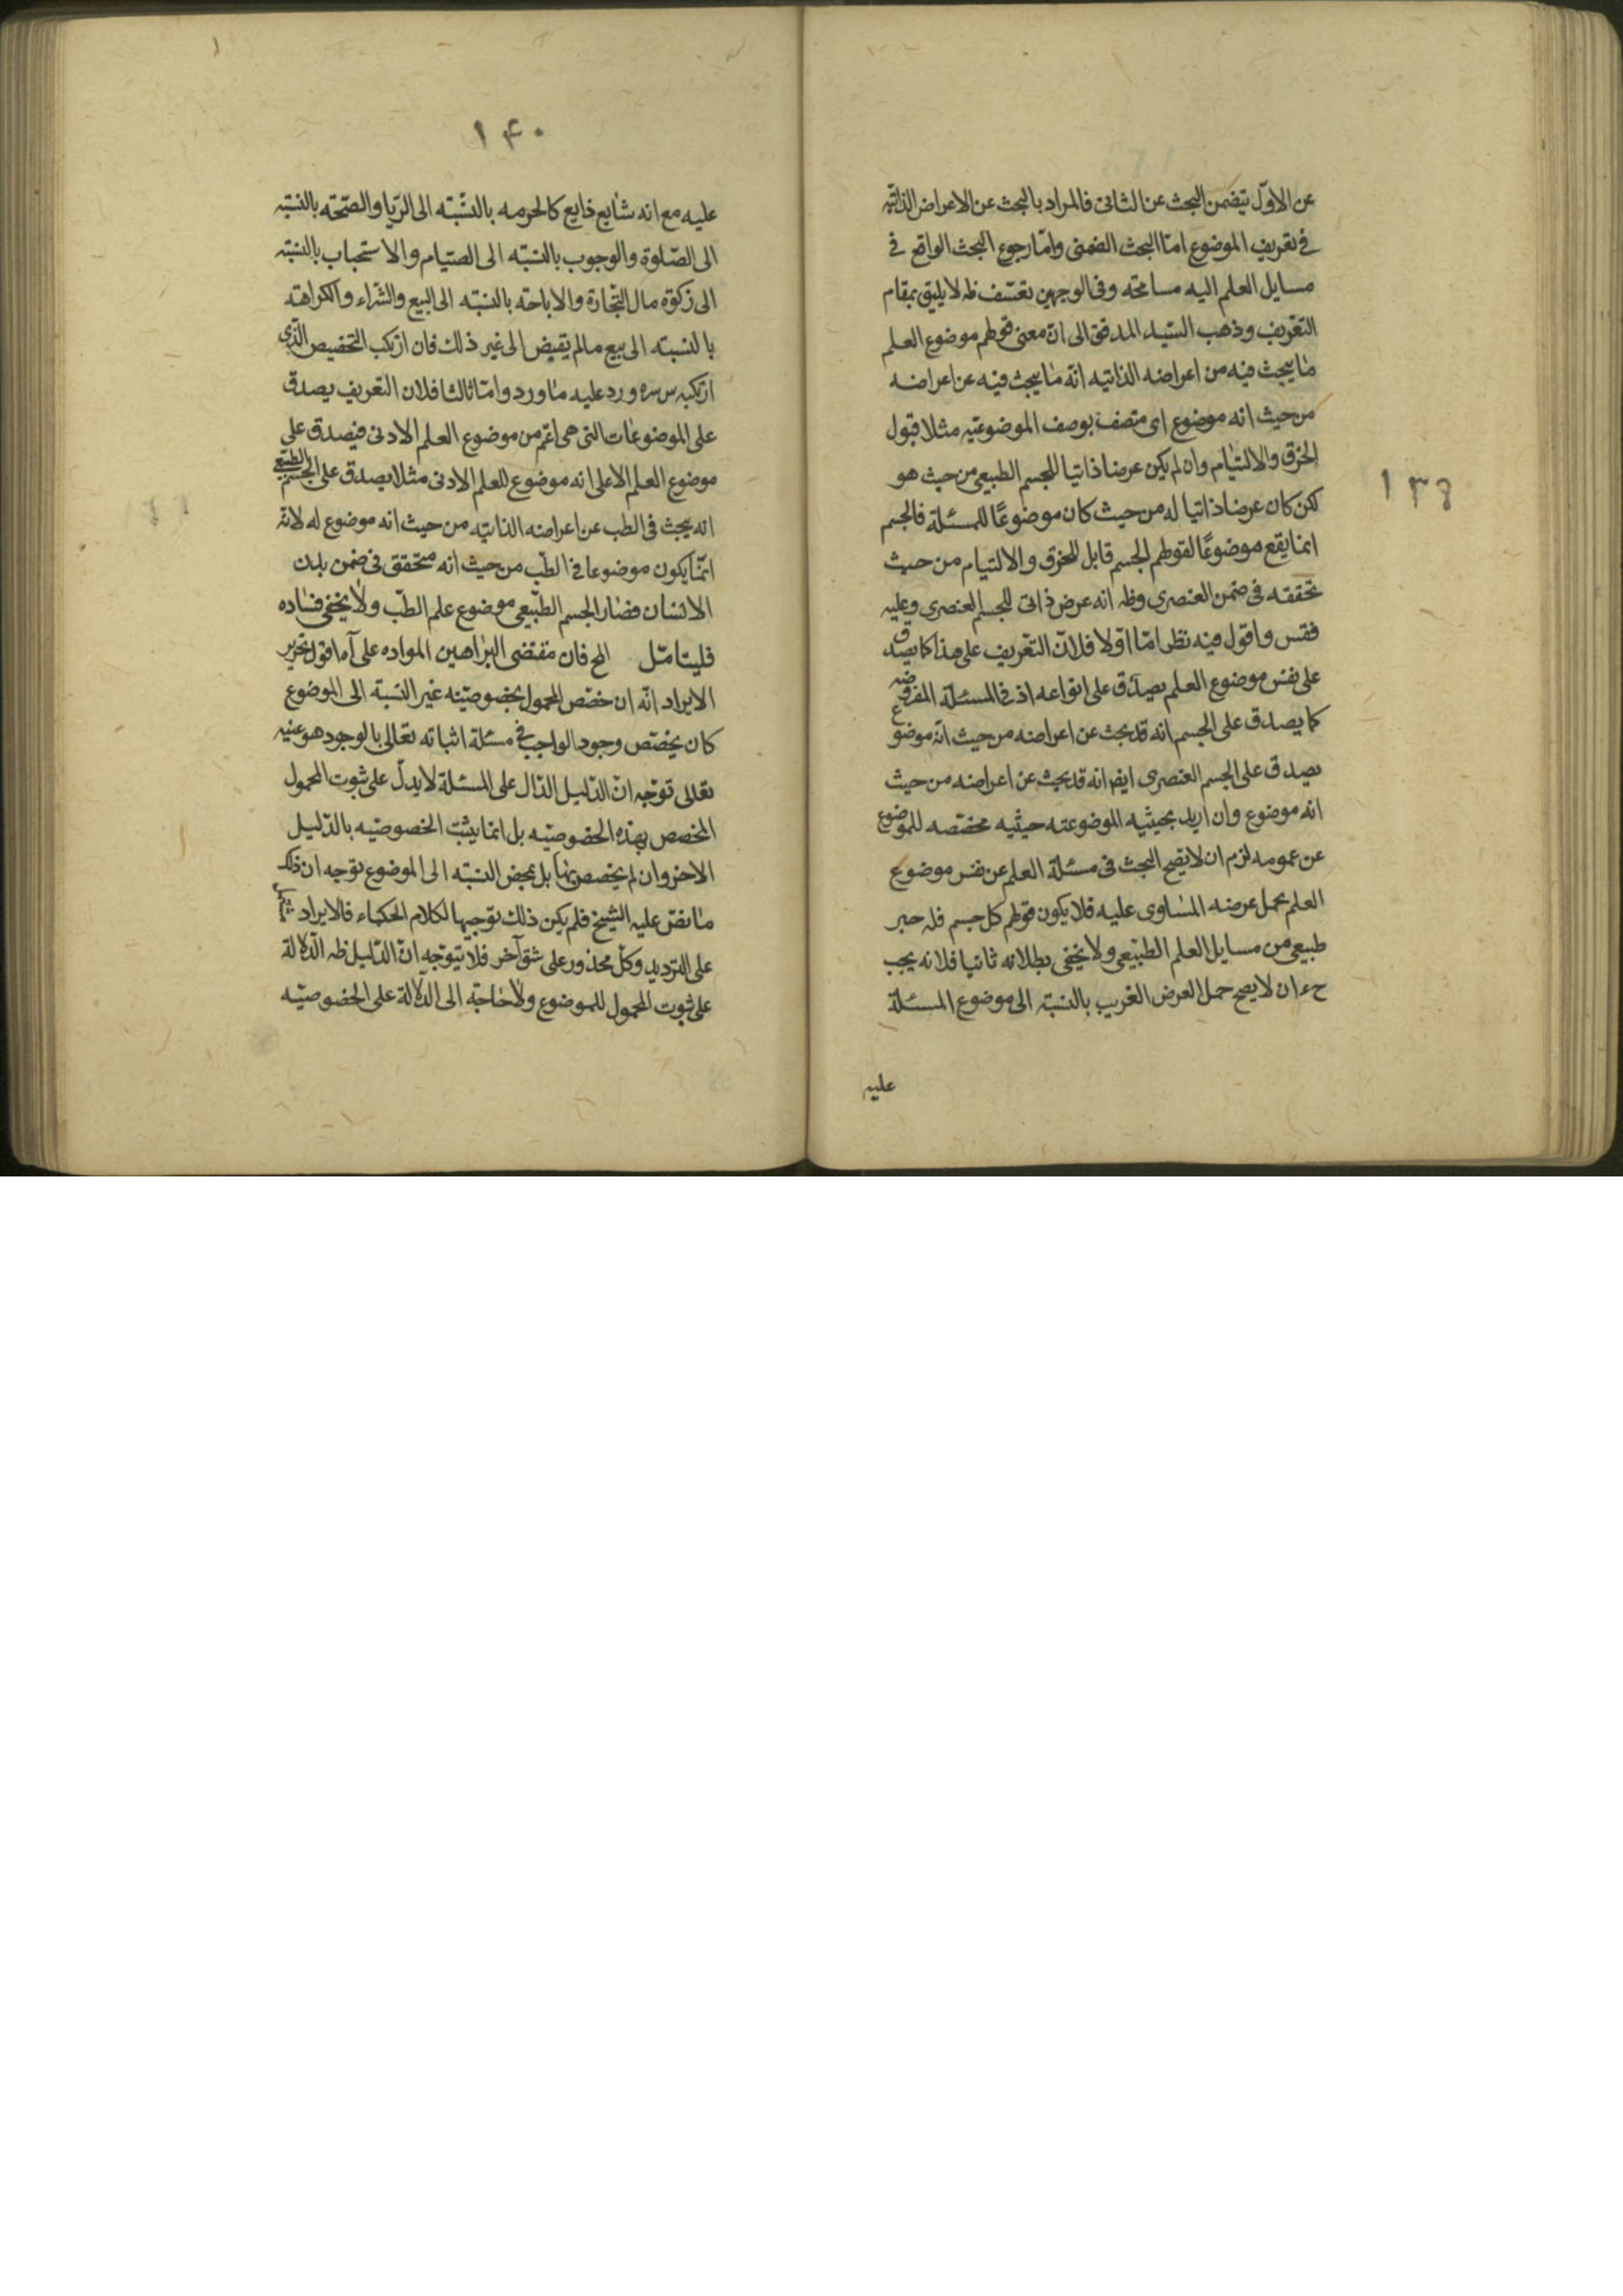 عن الاوّل يتضمن البحث عن الثانى فالمراد بالبحث عن الاعراض الذاتيّه
فى تعريف الموضوع امّا البحث الضمنى وامّا رجوع البحث الواقع فى
مسايل العلم اليه مسامحته وفى الوجهين تعسّف ظه لا يليق بمقام
التعريف وذهب السّيد المدقق الى انّ معنى قولهم موضوع العلم
ما يبحث فيه من اعراضه الذاتيه انّه ما يبحث فيه عن اعراضه
من حيث انه موضوع اى متصف بوصف الموضوعيّه مثلا قبول
الخرق والالتيام وان لم يكن عرضا ذاتيا للجسم الطبيعى من حيث هو
لكن كان عرضا ذاتيا له من حيث كان موضوعًا للمسئلة فالجسم
انما يقع موضوعًا لقولهم الجسم قابل للخرق والالتيام من حيث
تحققه فى ضمن العنصرى وظه انه عرض ذاتى للجسم العنصرى وعليه
فقس واقول فيه نظر امّا اوّلا فلانّ التعريف على هذا كما يصدق
على نفس موضوع العلم يصدق على انواعه اذ فى المسئلة المفروضه
كما يصدق على الجسم انه قد يبحث عن اعراضه من حيث انّه موضوع
يصدق على الجسم العنصرى ايضا انه قد يبحث عن اعراضه من حيث
انه موضوع وان اريد بحيثيه الموضوعيه حيثيه مخصّصه للموضوع
عن عمومه لزم ان لا يصح البحث فى مسئلة العلم عن نفس موضوع
العلم بحمل عرضه المساوى عليه فلا يكون قولهم كل جسم فله حيز
طبيعى من مسايل العلم الطبيعى ولا يخفى بطلانه ثانيا فلانه يجب
حء ان لا يصح حمل العرض الغريب بالنسبته الى موضوع المسئلة
عليه
١٣٩
١۴٠
عليه مع انه شايع ذايع كالحرمه بالنسّبته الى الرّبا والصّحته بالنسبته
الى الصّلوة والوجوب بالنسبّه الى الصيّام والاستحباب بالنسبته
الى زكوة مال التّجارة والاباحته بالنسبته الى البيع والشّراء والكراهته
بالنسبته الى بيع مالم يقبض الى غير ذلك فان ارتكب التخصيص الّذى
ارتكبه س سره ورد عليه ما ورد وامّا ثالثا فلان التعريف يصدق
على الموضوعات التى هى اعّم من موضوع العلم الادنى فيصدق على
موضوع العلم الاعلى انه موضوع للعلم الادنى مثلا يصدق على الجسم الطبيعى
انه يبحث فى الطب عن اعراضه الذاتيه من حيث انه موضوع له لانّه
انمّا يكون موضوعا فى الطّب من حيث انه متحقق فى ضمن بدن
الانسان فصار الجسم الطّبيعى موضوع علم الطّب ولا يخفى فساده
فليتامّل الخ فان مقتضى البراهين المواده على آه اقول تحرير
الايراد انّه ان خصّص المحمول بخصوصيّته غير النسبة الى الموضوع
كان يخصّص وجود الواجب فى مسئلة اثباته تعالى بالوجود هو عينه
تعالى توجّه انّ الدّليل الدّال على المسئلة لا يدلّ على ثبوت المحمول
المخصص بهذه الخصوصيّه بل انما يثبت الخصوصيّه بالدّليل
الاخر وان لم يخصص بها بل بمحض النسبّه الى الموضوع توجه ان ذلك
ما نصّ عليه الشيخ فلم يكن ذلك توجيها لكلام الحكماء فالايراد
على الترديد وكلّ محذور على شق آخر فلا يتوجّه انّ الدّليل ظه الدّلالة
على ثبوت المحمول للموضوع ولا حاجة الى الدلالة على الخصوصيّه